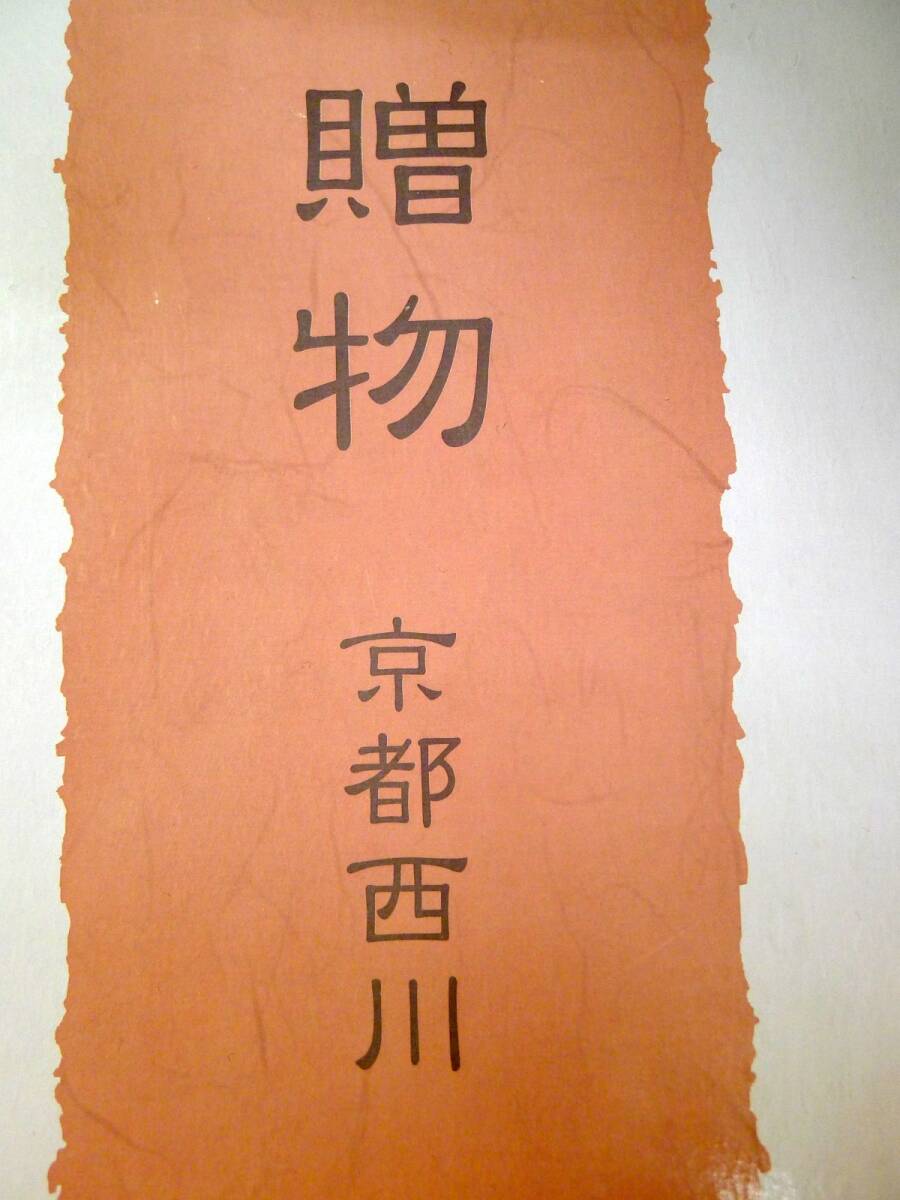 贈物
京都西川